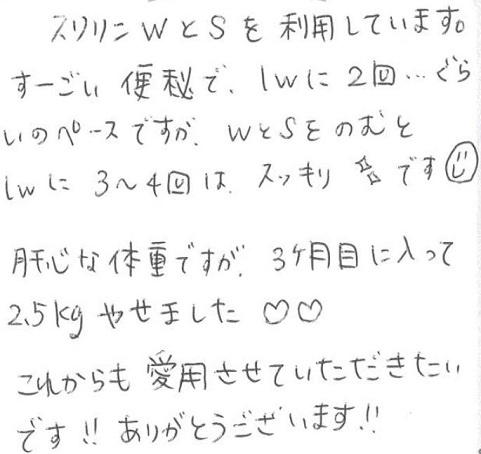 スリリンWとSを利用しています。
すーごい便秘で、1wに2回…ぐら
いのペースですが、WとSをのむと
1wに3〜4回は、スッキリ☆☆です☺
肝心な体重ですが、3ヶ月目に入って
2.5kgやせました♡♡
これからも愛用させていただきたい
です!!ありがとうございます!!